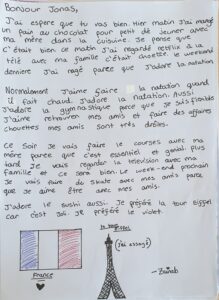 Bonjour Jonas,
J'ai espere que tu vas bien. Hier matin j'ai mangé
un pain au chocolat pour petit de jeuner avec
ma mère dans la cuisine. Je pense que
c'était bien ce matin. J'ai regardé netflix à la
télé avec ma famille c'était chouette. Le weekend
derniere j'ai nagé parce que j'adore la natation.
Normalement j'aime faire la natation quand
il fait chaud. J'adore la natation. Aussi
j'adore la gymnastique parce que je suis flexible
J'aime retrouver mes amis et faire des affaires
chouettes mes amis sont très drôles.
Ce Soir je vais faire le courses avec ma
mère parce que c'est essentiel et genial. plus
tard Je vais regarder la television avec ma
famille et ce sera bien. Le week-end prochain
Je vais faire du skate avec mes amis parce
que je aime être avec mes amis.
J'adore le sushi aussi. Je préféré la tour eiffel
car c'est Joli. JR préféré le violet.
(j'ai essayé)
France
- Zainab